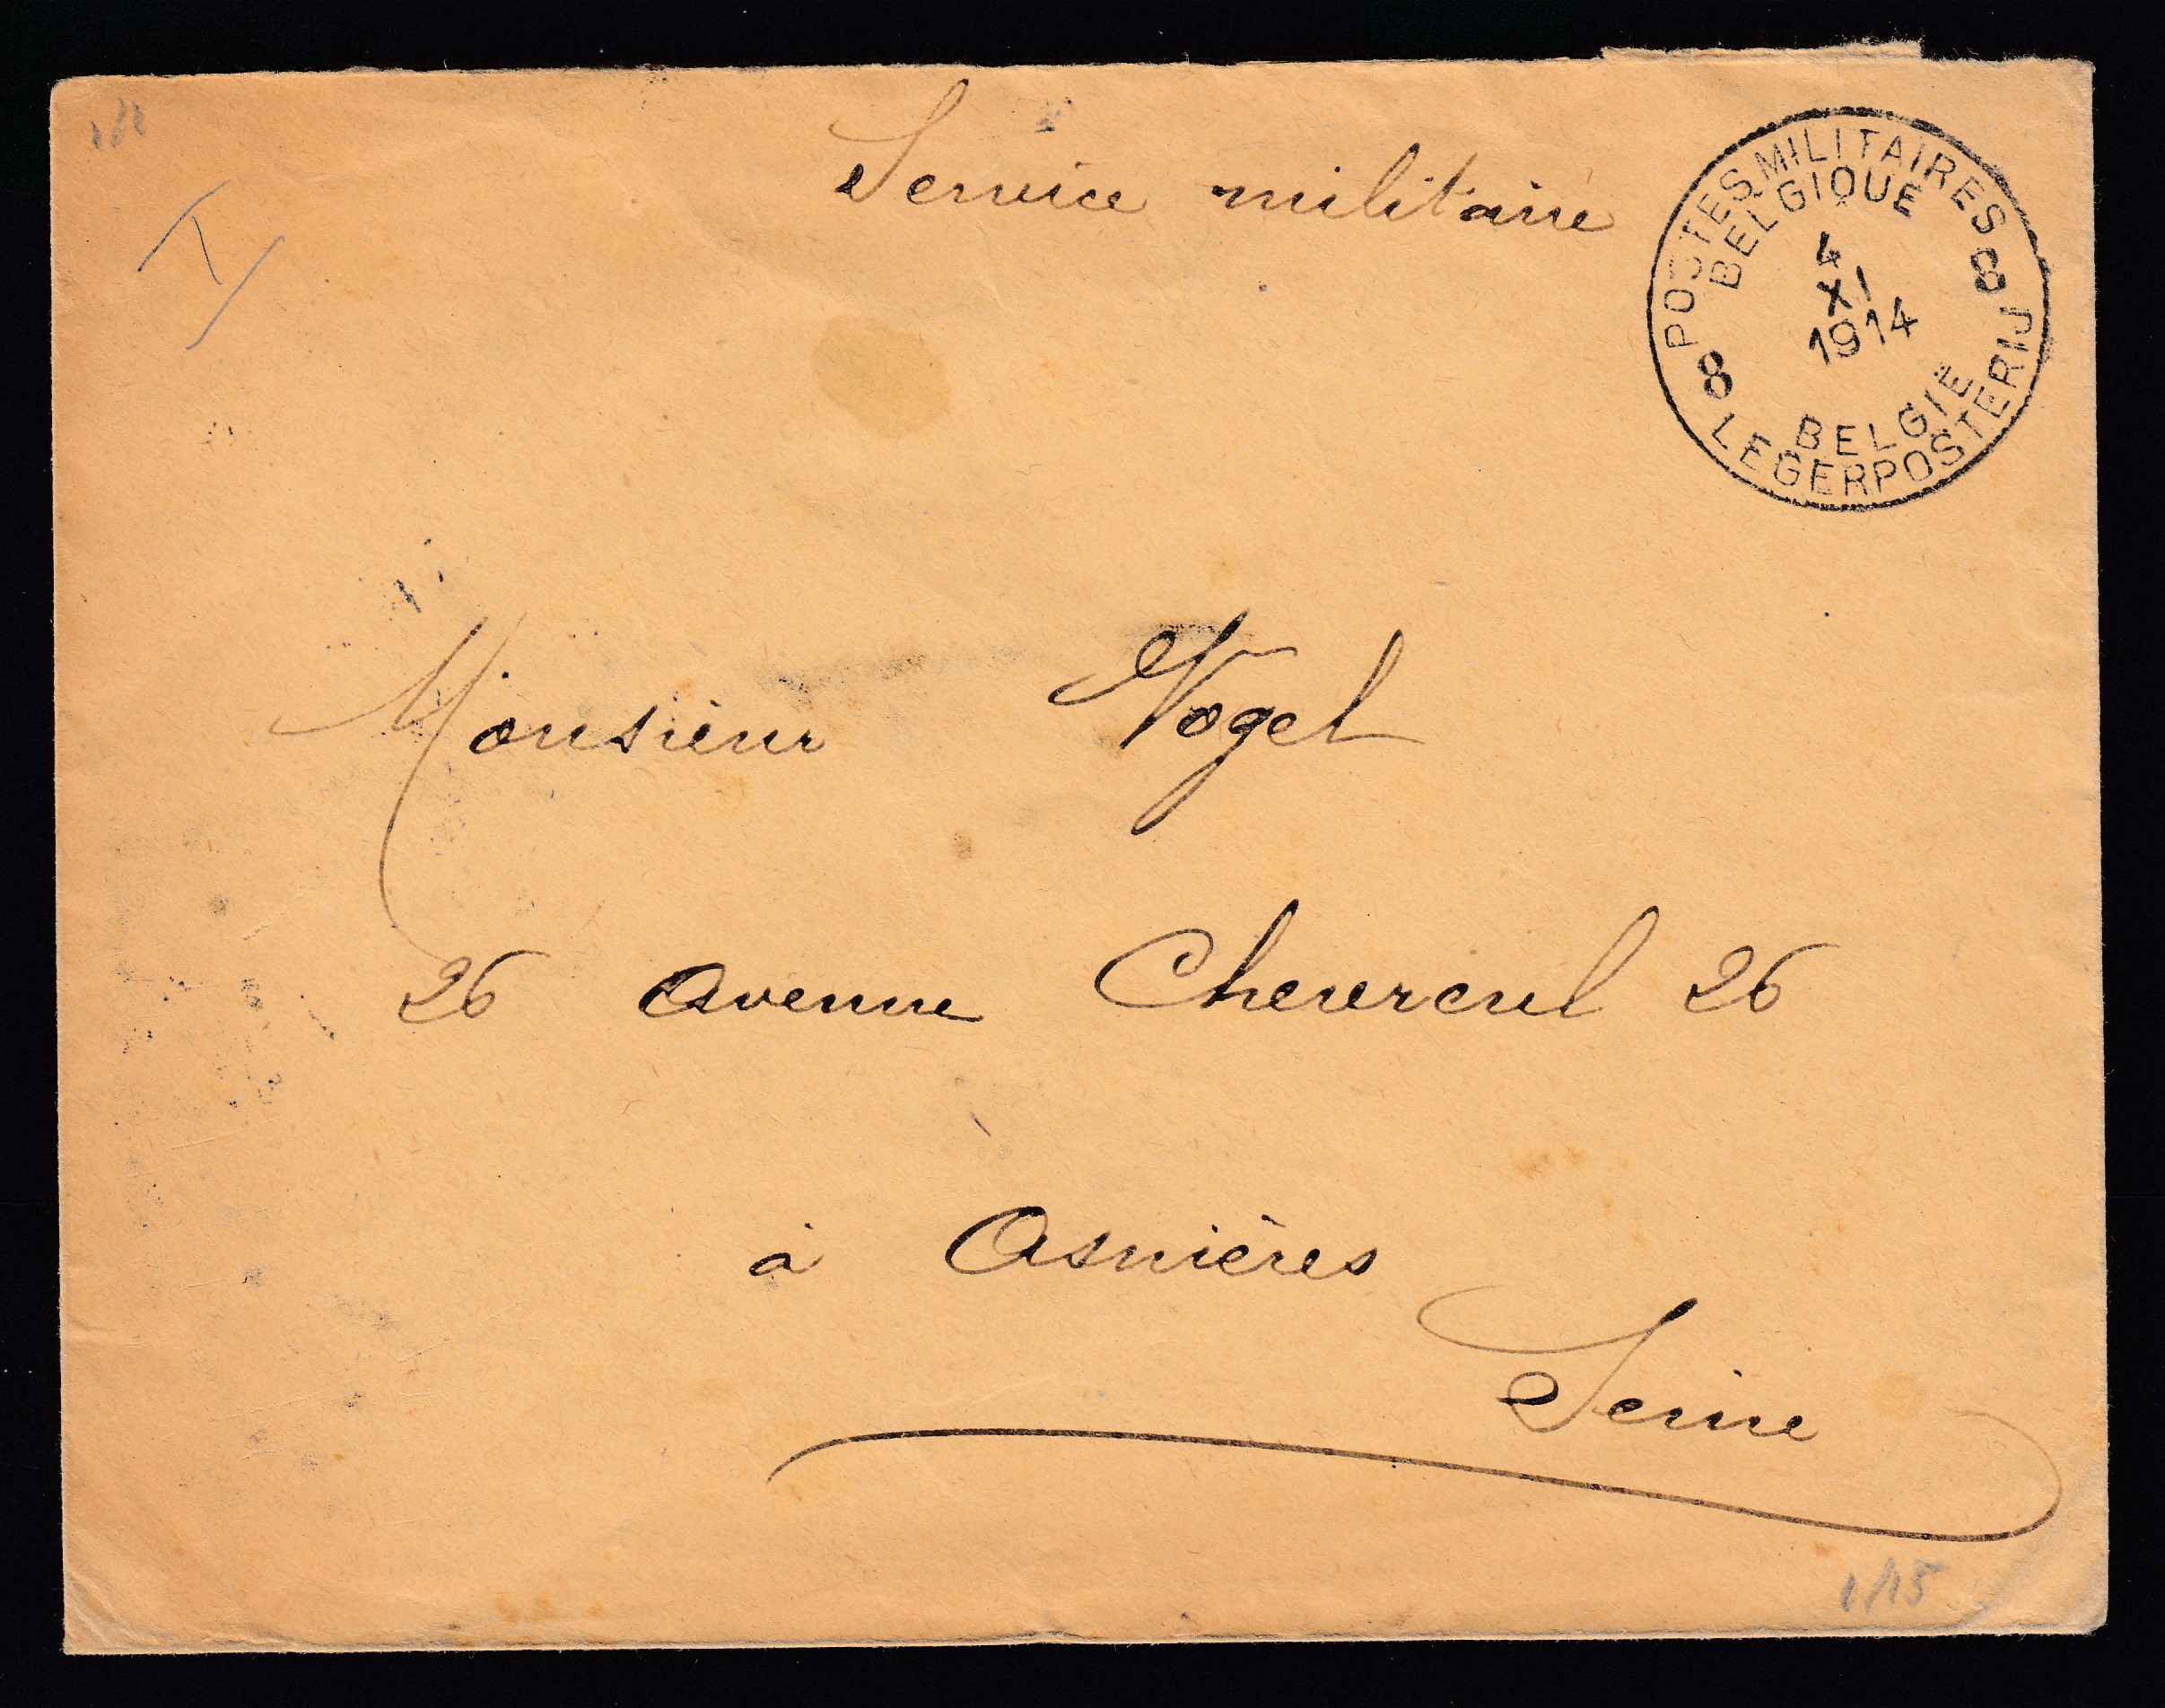 Service militaire
POSTES MILITAIRES
BELGIQUE
4
XI
1914
8 8
BELGIË
LEGERPOSTERIJ
Monsieur Vogel
26 Avenue Chevreul 26
à Asnières
Seine
1/15